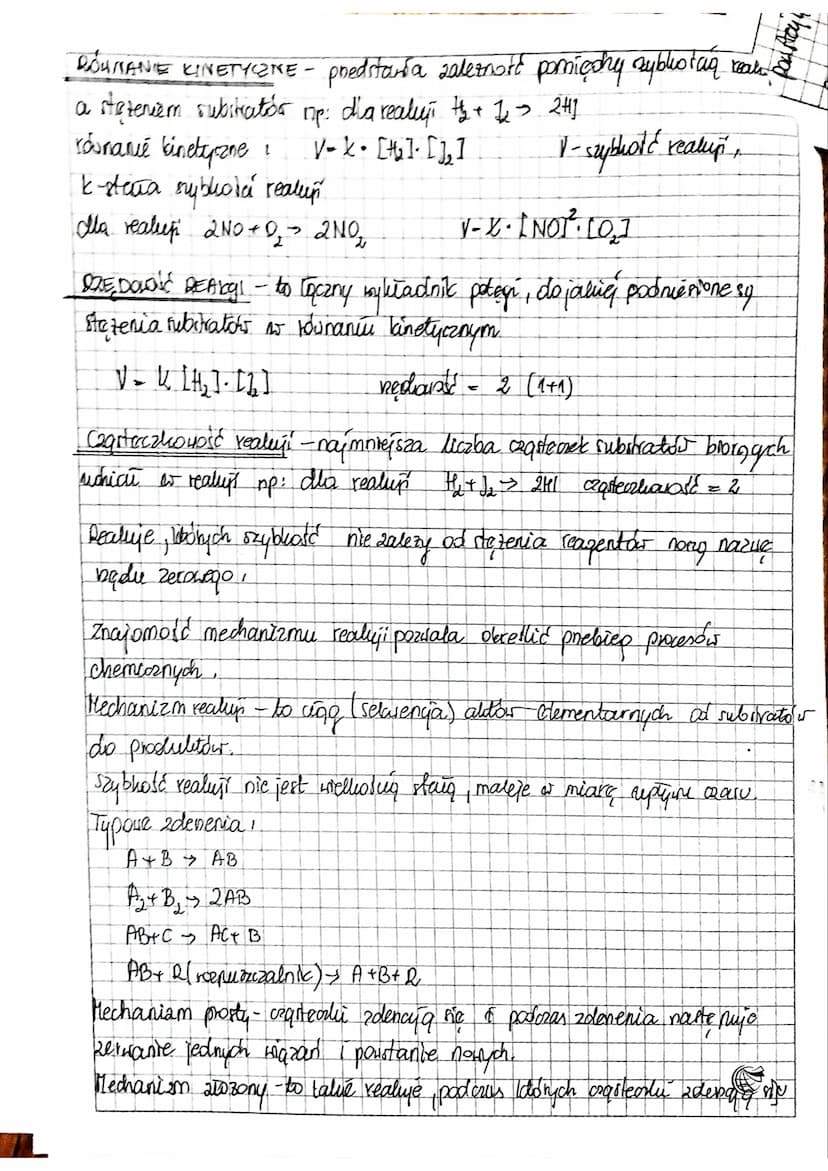 powstaj
RÓWNANIE KINETYCZNE - przedstawia zależność pomiędzy szybkością reak.
a stężeniem substratów np: dla reakcji H₂ + I₂ → 2HI
równanie kinetyczne: V = k · [H₂] · [I₂] V - szybkość reakcji,
k - stała szybkości reakcji
dla reakcji 2NO + O₂ → 2NO₂ V = k · [NO]² · [O₂]
RZĘDOWOŚĆ REAKCJI - to łączny wykładnik potęgi, do jakiej podniesione są
stężenia substratów w równaniu kinetycznym.
V = k [H₂] · [I₂] rzędowość = 2 (1+1)
Cząsteczkowość reakcji - najmniejsza liczba cząsteczek substratów biorących
udział w reakcji np: dla reakcji H₂ + I₂ → 2HI cząsteczkowość = 2
Reakcje, których szybkość nie zależy od stężenia reagentów noszą nazwę
rzędu zerowego.
Znajomość mechanizmu reakcji pozwala określić przebieg procesów
chemicznych.
Mechanizm reakcji - to ciąg (sekwencja) aktów elementarnych od substratów
do produktów.
Szybkość reakcji nie jest wielkością stałą, maleje w miarę upływu czasu.
Typowe zderzenia:
A + B → AB
A₂ + B₂ → 2AB
AB + C → AC + B
AB + R (rozpuszczalnik) → A + B + R
Mechanizm prosty - cząsteczki zderzają się i podczas zderzenia następuje
zerwanie jednych wiązań i powstanie nowych.
Mechanizm złożony - to takie reakcje, podczas których cząsteczki zderzają się